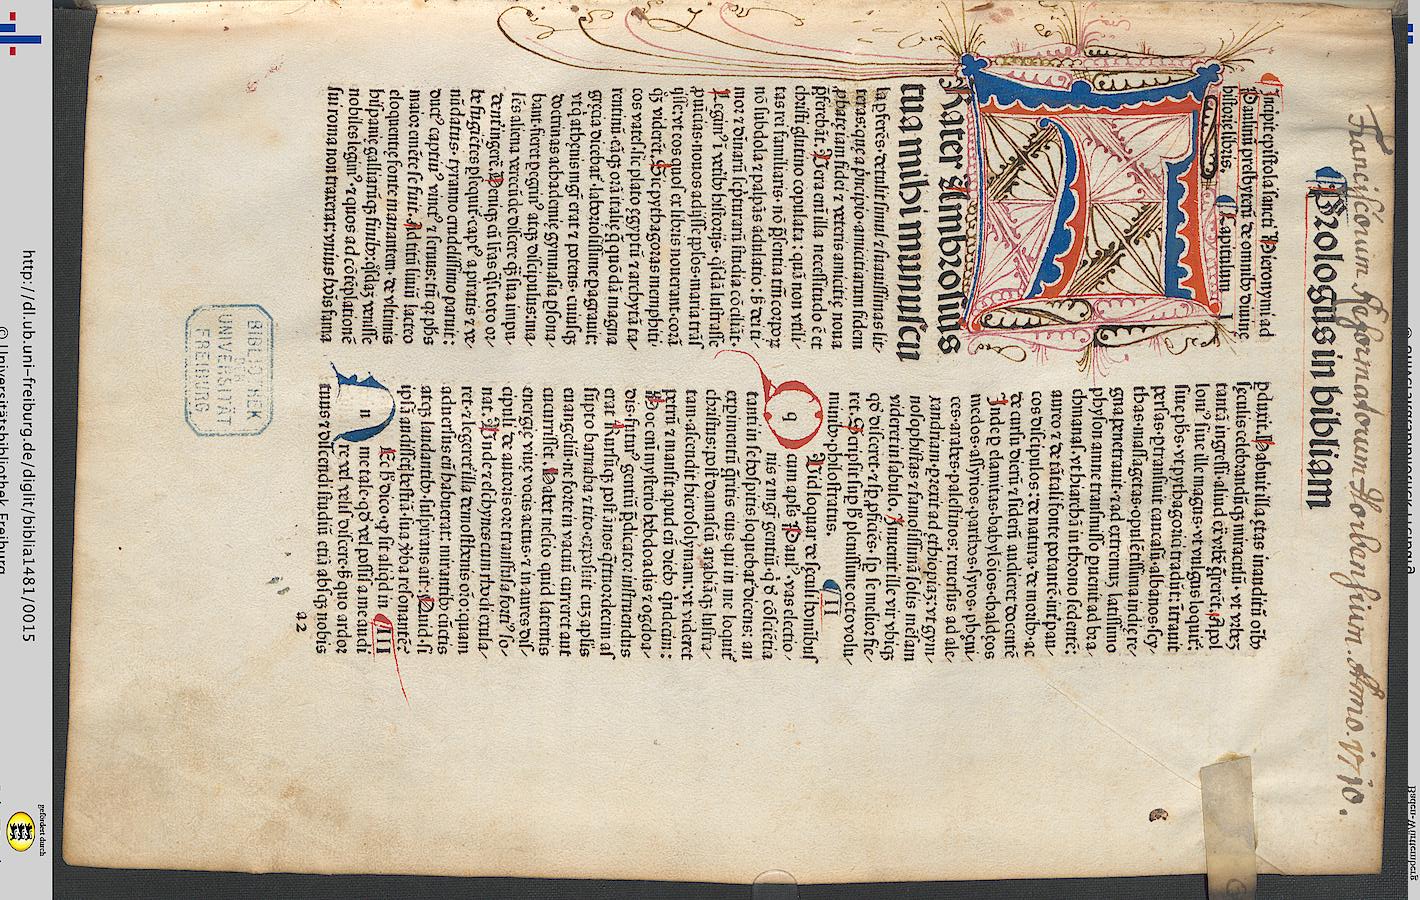 Franciscorum Reformatorum Horbensium. Anno. 1710.
Prologus in bibliam
Incipit epistola sancti Hieronymi ad
Paulinū presbyterū de omnib divine
historie libris. Capitulum. I.
Frater Ambrosius
tua mihi munuscu
la pferēs. detulit simul et suauissimas lit
teras: que a pncipio amicitiarū fidem
pbate iam fidei et veteris amicitie noua
pferebāt. Vera eni illa necessitudo ē et
christi glutino copulata: quā non vtili
tas rei familiaris. nō pñtia tm̄ corpoꝝ
nō subdola et palpās adulatio: sed dei ti
mor et diuinarū scripturarū studia cōciliāt.
Legimꝰ ī veterib historijs. quosdā lustrasse
puīcias. nouos adijsse pplos. maria trās
isse. vt eos quos ex libris nouerant. corā
qꝫ viderēt. Sic pythagoras memphiti
cos vates. sic plato egyptū et archytā ta
rentinū. eāqꝫ orā italie que quōdā magna
grecia dicebat. laboriosissime pagrauit:
vt qui athenis mgr̄ erat et potens. cuiusqꝫ
doctrinas achademie gymnasia psona
bant. fieret pegrinꝰ atqꝫ discipulus. ma
lēs aliena verecūde discere qꝫ sua impu
dent ingere. Deniqꝫ cū lr̄as qͣsi toto or
be fugiētes pseqͥtur. captꝰ a piratis et ve
nūdatus. tyranno crudelissimo paruit:
ductꝰ captiuꝰ vinctꝰ et seruus. tn̄ qꝛ phs
maior emēte se fuit. Ad titū liuiū lacteo
eloquentie fonte manantem. de vltimis
hispanie galliarūqꝫ finib qͦsdā venisse
nobiles legimꝰ. et quos ad cōtēplationē
sui roma non traxerat: vnius hoīs fama
pduxit. Habuit illa etas inauditū oīb
seculis celebrandūqꝫ miraculū. vt vrbē
tantā ingressi. aliud extra vrbē quererēt. Apol
loniꝰ siue ille magus. vt vulgus loquit:
siue phs. vt pythagorici tradūt: intrauit
psas. ptransiuit caucasū. albanos. scy
thas. massagetas. opulētissima indie re
gna penetrauit. et ad extremū latissimo
physon amne transmisso puenit ad bra
chmanas. vt hiarchā in throno sedentē:
aureo et de tātali fonte potantē. int pau
cos discipulos: de natura. de morib. ac
de cursu dierū et siderū audiret docentē
Inde p elamitas. babylōios. chaldeos
medos. assyrios. parthos. syros. pheni
ces. arabes. palestinos: reuersus ad ale
xandriam. prexit ad ethiopiā: vt gym
nosophistas et famosissimā solis mēsam
videret in sabulo. Inuenit ille vir vbiqꝫ
qd disceret. et sp pficiēs. sp se melior fie
ret. Scripsit sup h plenissime octo volu
minib philostratus. II
Quid loquar de seculi homībus
cum apls Paulꝰ. vas electio
nis et mgr gentiū. qui de cōsciētia
tanti in se hospitis loquebat dicens: an
experimentū queritis eius qui in me loquit
christus. post damascū arabiāqꝫ lustra
tam. ascendit hierosolymam. vt videret
petrū et mansit apud eū dieb quindecim:
Hoc eni mysterio hebdoadis et ogdoa
dis. futurꝰ gentiū pdicator instruendus
erat. Rursūqꝫ post ānos quattuordecim as
sūpto barnaba et tito. exposuit cū aplis
euangeliū. ne forte in vacuū curreret aut
cucurrisset. Habet nescio quid latentis
energie viue vocis actus. et in aures dis
cipuli de autoris ore transfusa fortiꝰ so
nat. Unde et eschynes cum rhodi exula
ret. et legeret illa demosthenis oro quam
aduersus eū habuerat: mirantib cūctis
atqꝫ laudantib. suspirans ait. Quid. si
ipsā audissetis bestiā. sua vba resonantē:
Nec h dico. qꝛ sit aliqd in III
me tale. qd vel possis a me audi
re vel velis discere. sed quo ardor
tuus et discendi studiū. etiā absqꝫ nobis
a2
BIBLIOTHEK
DER
UNIVERSITÄT
FREIBURG
http://dl.ub.uni-freiburg.de/diglit/bibla1481/0015
© Universitätsbibliothek Freiburg
gefördert durch